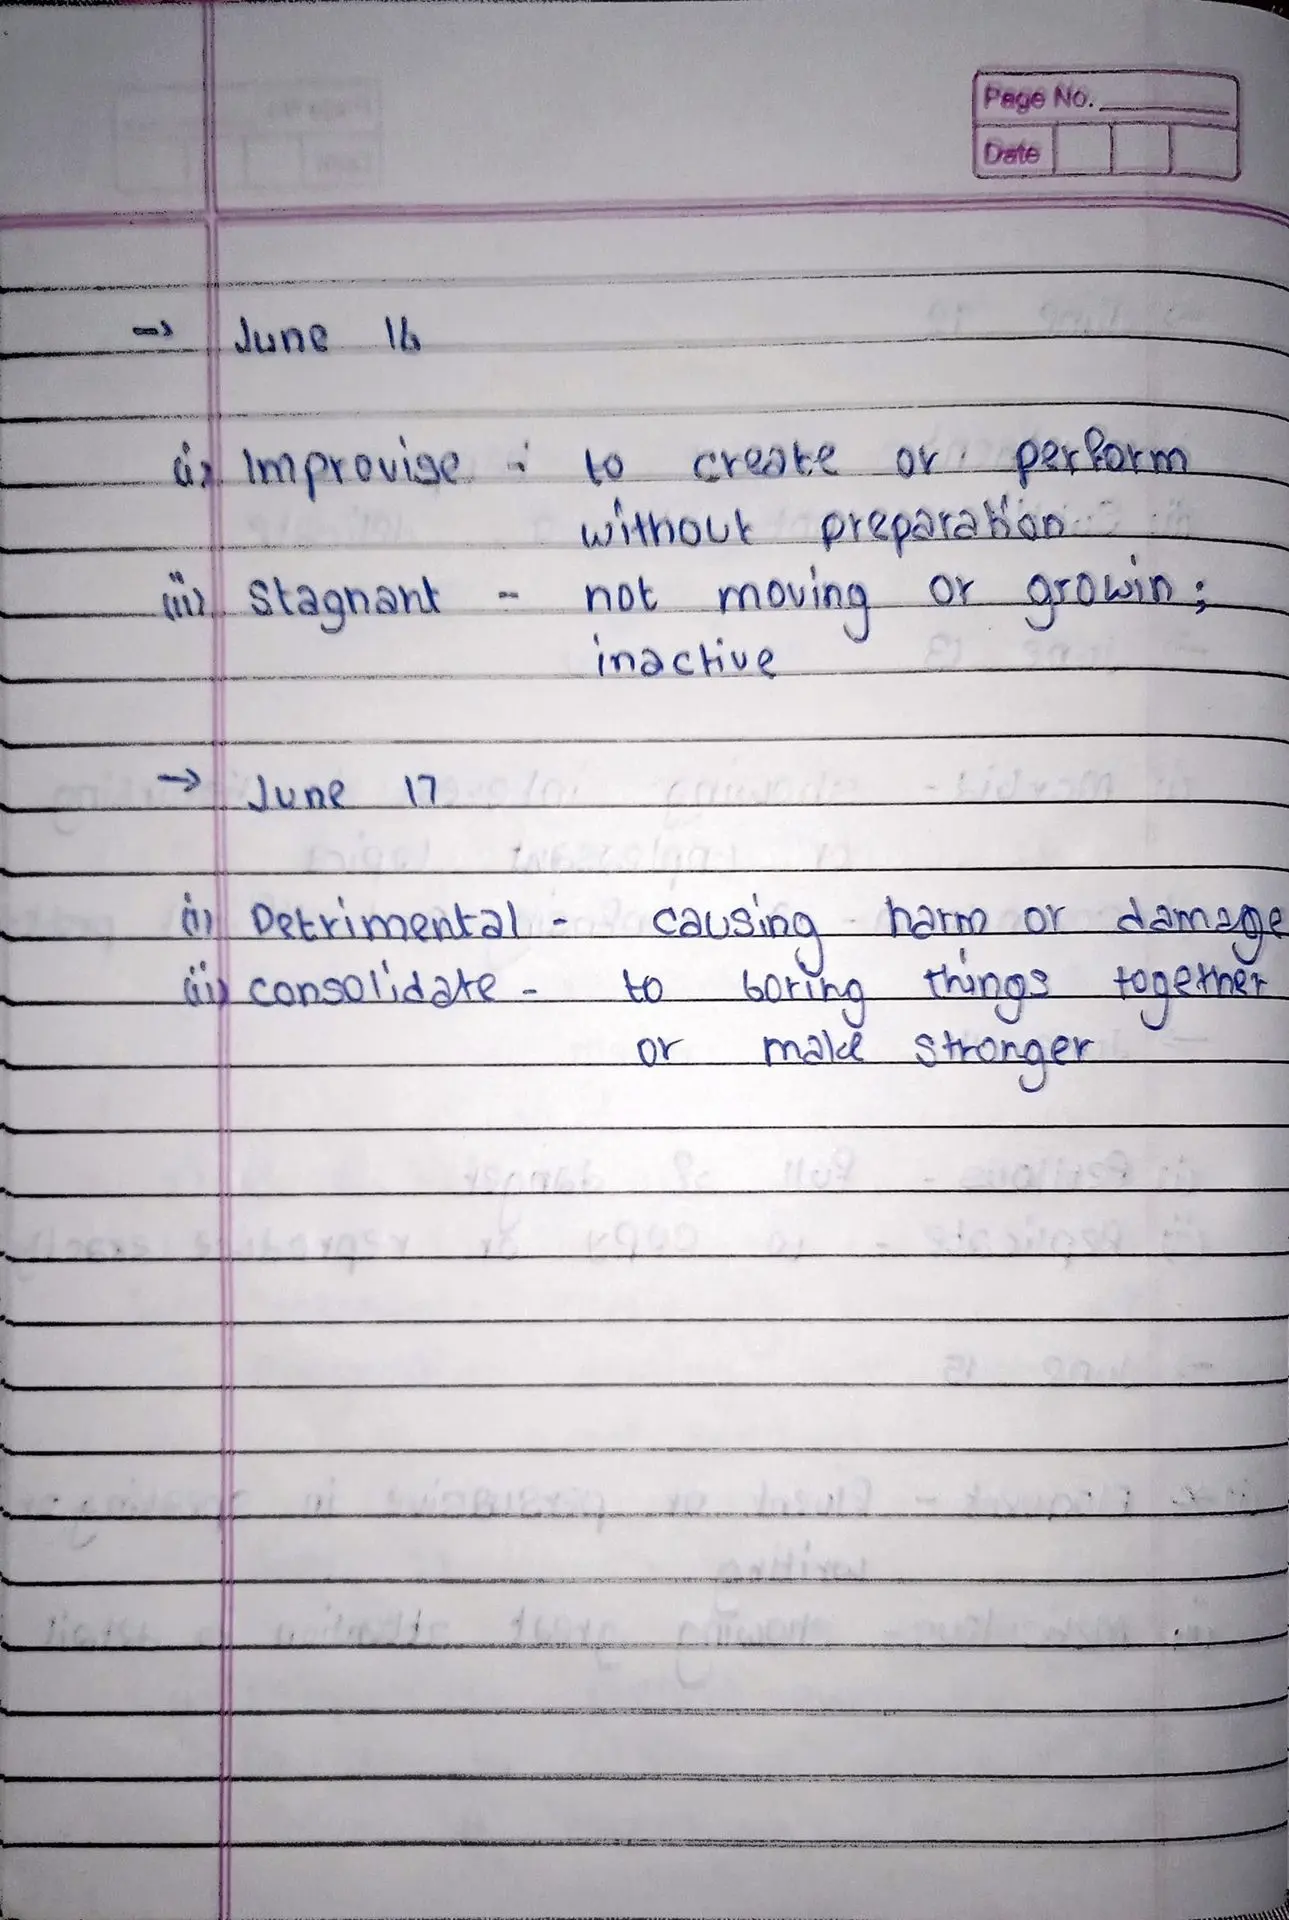 Page No.
Date
→ June 16
(i) Improvise : to create or perform
without preparation
(ii) Stagnant - not moving or growin;
inactive
→ June 17
(i) Detrimental - causing harm or damage
(ii) consolidate - to boring things together
or make stronger